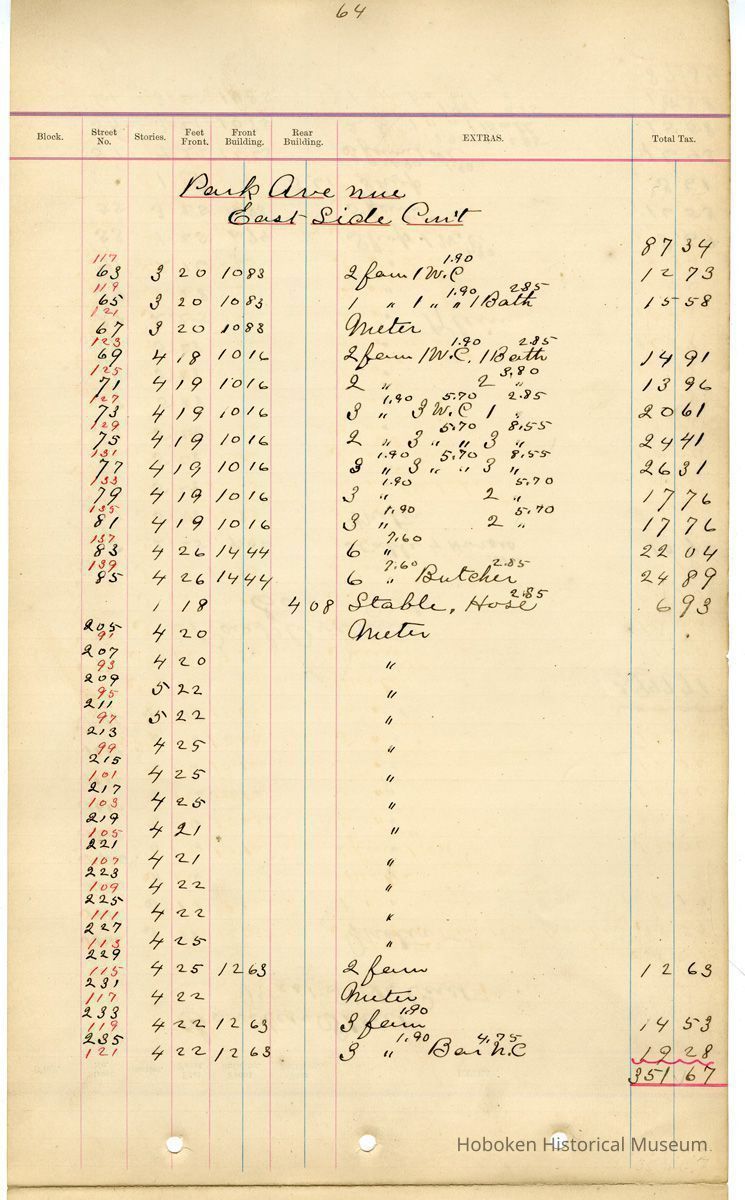 64
Block. Street No. Stories. Feet Front. Front Building. Rear Building. EXTRAS. Total Tax.
Park Avenue
East Side Con't
87 34
117
63 3 20 10 83 2 fam 1 W.C 1.90 12 73
119
65 3 20 10 83 1 " 1 " " 1.90 1 Bath 2.85 15 58
121
67 3 20 10 83 Meter
123
69 4 18 10 16 2 fam 1 W.C. 1.90 1 Bath 2.85 14 91
125
71 4 19 10 16 2 " 2 " 3.80 13 96
127
73 4 19 10 16 3 " 1.90 3 W.C 5.70 1 " 2.85 20 61
129
75 4 19 10 16 2 " 3 " " 5.70 3 " 8.55 24 41
131
77 4 19 10 16 3 " 1.90 3 " " 5.70 3 " 8.55 26 31
133
79 4 19 10 16 3 " 1.90 2 " 5.70 17 76
135
81 4 19 10 16 3 " 1.90 2 " 5.70 17 76
137
83 4 26 14 44 6 " 7.60 22 04
139
85 4 26 14 44 6 " 7.60 Butcher 2.85 24 89
1 18 4 08 Stable, Hose 2.85 6 93
205
91 4 20 Meter
207
93 4 20 "
209
95 5 22 "
211
97 5 22 "
213
99 4 25 "
215
101 4 25 "
217
103 4 25 "
219
105 4 21 "
221
107 4 21 "
223
109 4 22 "
225
111 4 22 "
227
113 4 25 "
229
115 4 25 12 63 2 fam 12 63
231
117 4 22 Meter
233
119 4 22 12 63 3 fam 1.90 14 53
235
121 4 22 12 63 3 " 1.90 Bar N.C 4.75 19 28
351 67
Hoboken Historical Museum